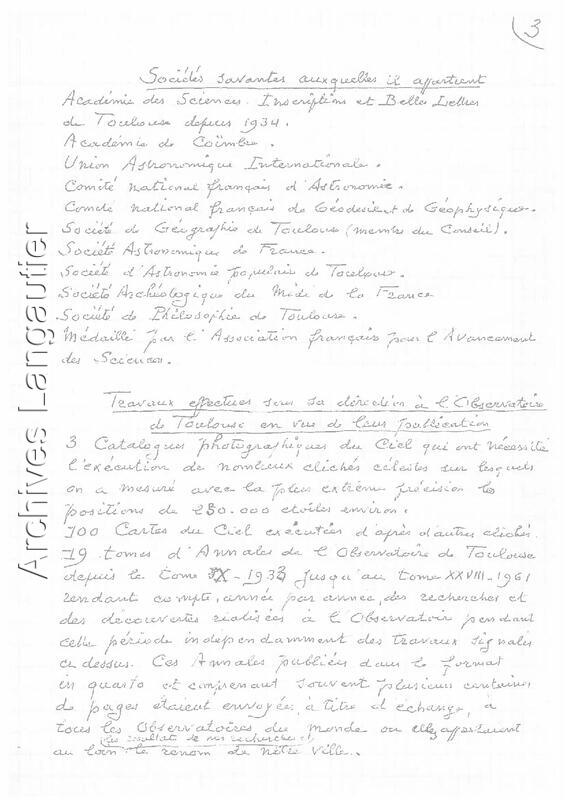 3
Sociétés savantes auxquelles il appartient
Académie des Sciences. Inscriptions et Belles Lettres
de Toulouse depuis 1934.
Académie de Coïmbre.
Union Astronomique Internationale.
Comité national français d'Astronomie.
Comité national français de Géodésie et de Géophysique.
Société de Géographie de Toulouse (membre du Conseil).
Société Astronomique de France.
Société d'Astronomie populaire de Toulouse.
Société Archéologique du Midi de la France
Société de Philosophie de Toulouse.
Médaillé par l'Association français pour l'Avancement
des Sciences.
Travaux effectués sous sa direction à l'Observatoire
de Toulouse en vue de leur publication
3 Catalogues photographiques du Ciel qui ont nécessité
l'exécution de nombreux clichés célestes sur lesquels
on a mesuré avec la plus extrême précision les
positions de 250.000 étoiles environ.
700 Cartes du Ciel exécutées d'après d'autres clichés.
19 tomes d'Annales de l'Observatoire de Toulouse
depuis le tome IX - 1933 jusqu'au tome XXVIII - 1961
rendant compte, année par année, des recherches et
des découvertes réalisées à l'Observatoire pendant
cette période indépendamment des travaux signalés
ci dessus. Ces Annales publiées dans le format
in quarto et comprenant souvent plusieurs centaines
de pages étaient envoyées, à titre d'échange, à
tous les Observatoires du monde où elles apportaient
les résultats de nos recherches et
au loin le renom de notre Ville.
Archives Langautier